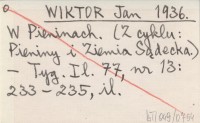 WIKTOR Jan 1936.
W Pieninach. (Z cyklu:
Pieniny i Ziemia Sądecka.)
- Tyg. Il. 77, nr 13:
233-235, il.